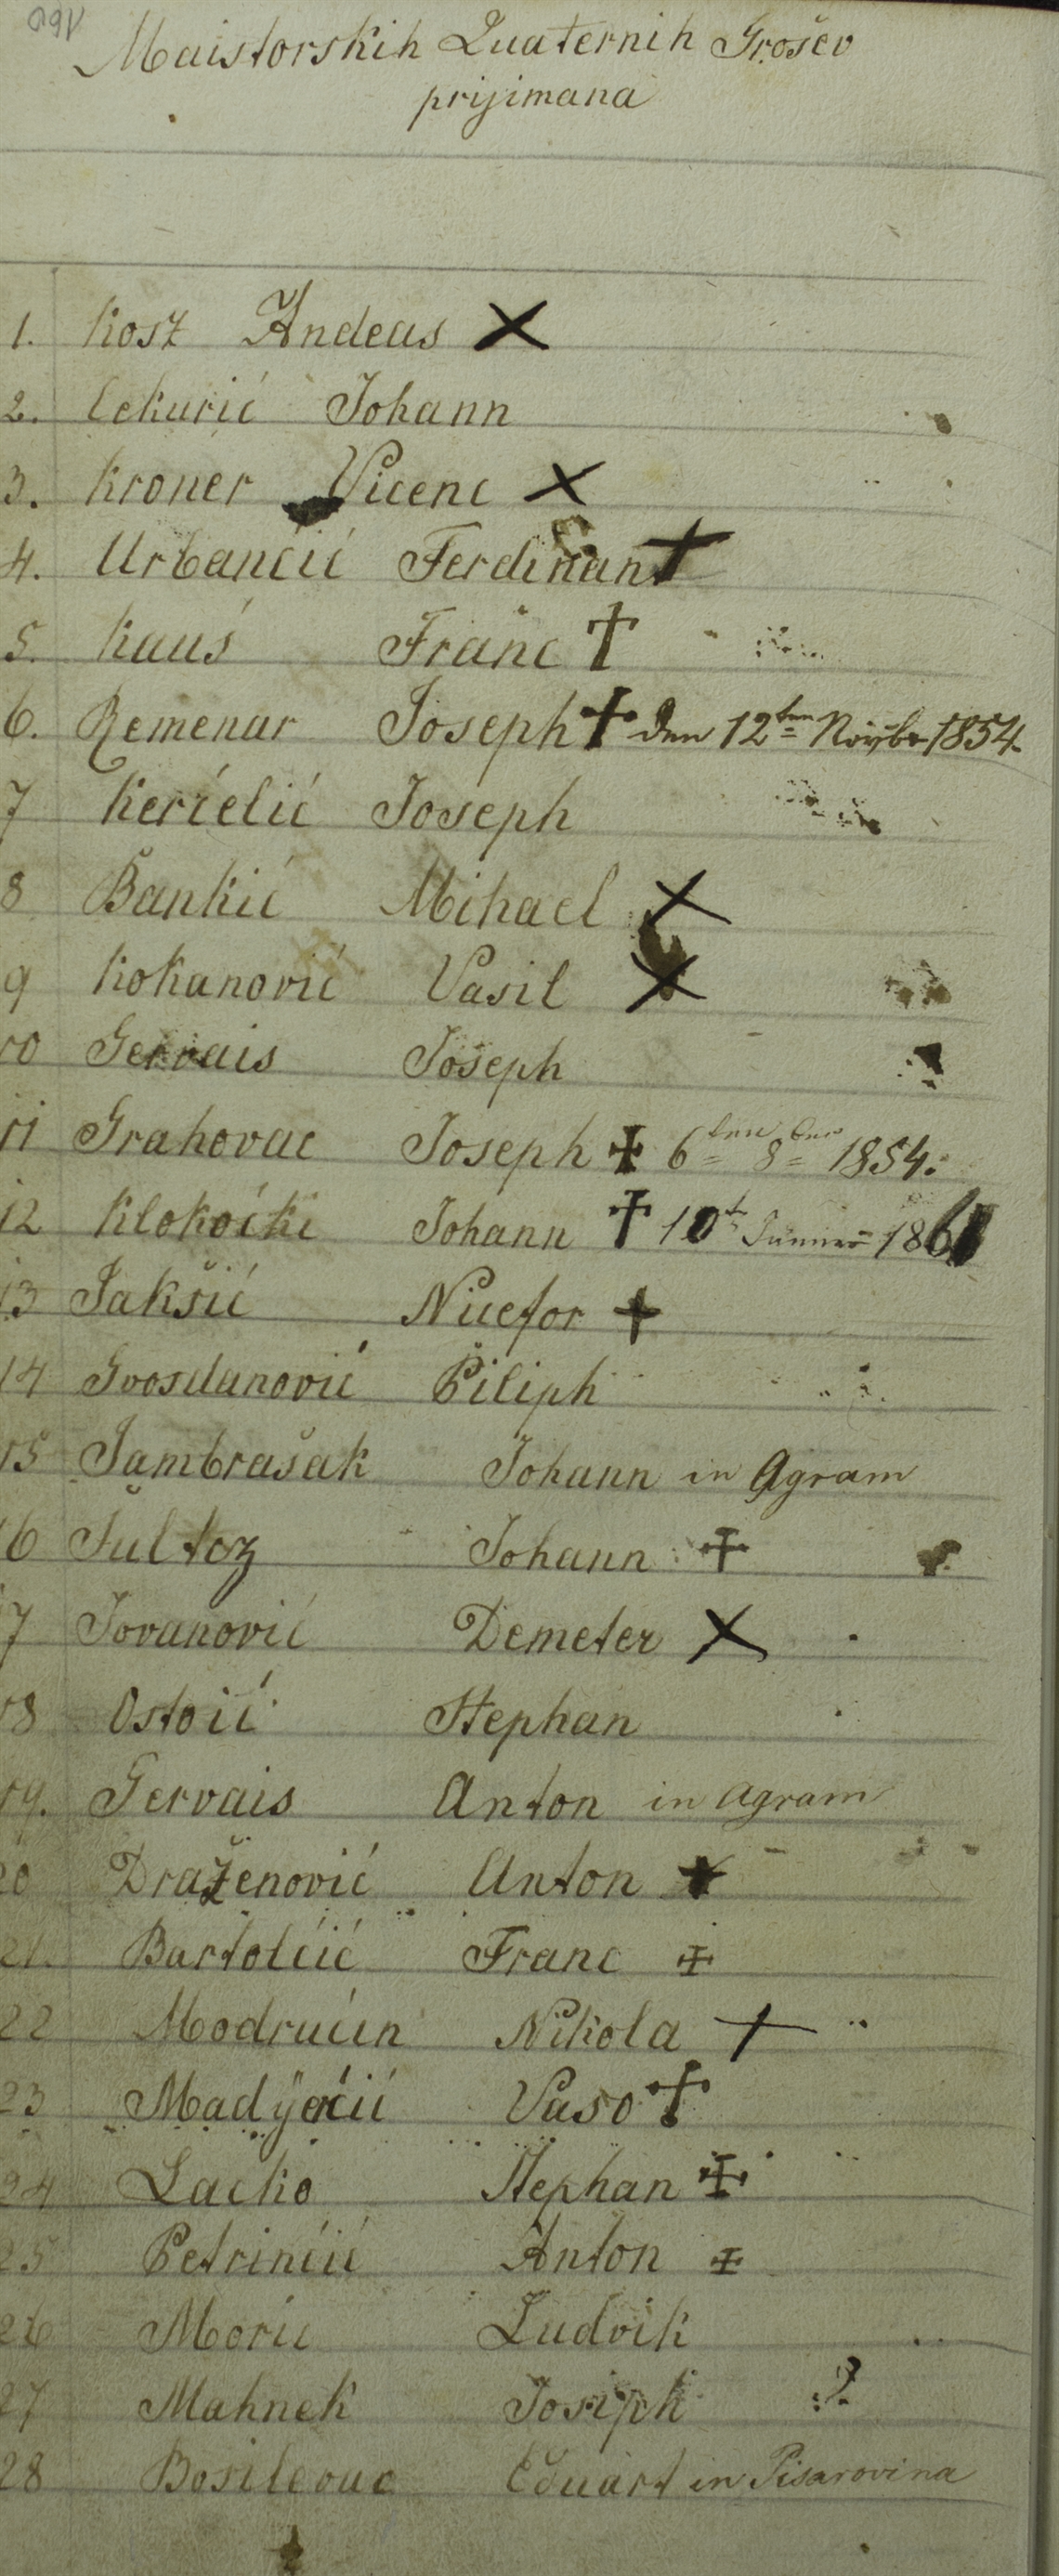 160
Maistorskih Quaternih Grošev
prijimana
1. Kosz Andeas X
2. Cekurić Johann
3. Kroner Vicenc X
4. Urbančić Ferdinan †
5. Kauś Franc †
6. Remenar Joseph † den 12ten Novbr 1854.
7 Kerčelić Joseph
8 Bankić Mihael X
9 Kokanović Vasil X
10 Gervais Joseph
11 Grahovac Joseph † 6ten 8ber 1854.
12 Klokočki Johann † 10t 186
13 Jakšić Nicefor †
14 Gvosdanović Piliph
15 Jambrašak Johann in Agram
16 Šultcz Johann †
17 Jovanović Demeter X
18 Ostoić Stephan
19. Gervais Anton in Agram
20 Draženović Anton †
21. Bartolčić Franc †
22 Modručin Nikola †
23 Vaso †
24 Lacko Stephan †
25 Petrinčić Anton †
26 Moric Ludvik
27 Mahnek Josiph ?
28 Bosileouc Eduart in Pisarovina